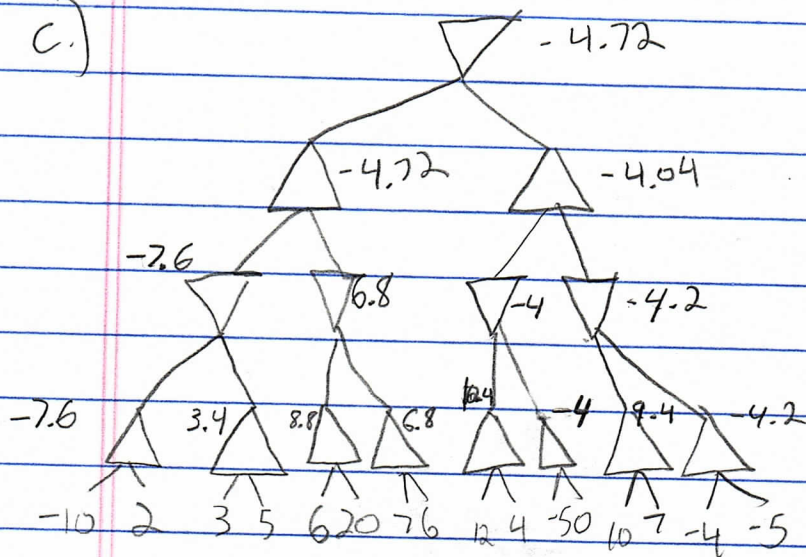 C.)
-4.72
-4.72 -4.04
-7.6 6.8 -4 -4.2
-7.6 3.4 8.8 6.8 -4 9.4 -4.2
-10 2 3 5 6 20 7 6 12 4 -5 0 10 7 -4 -5